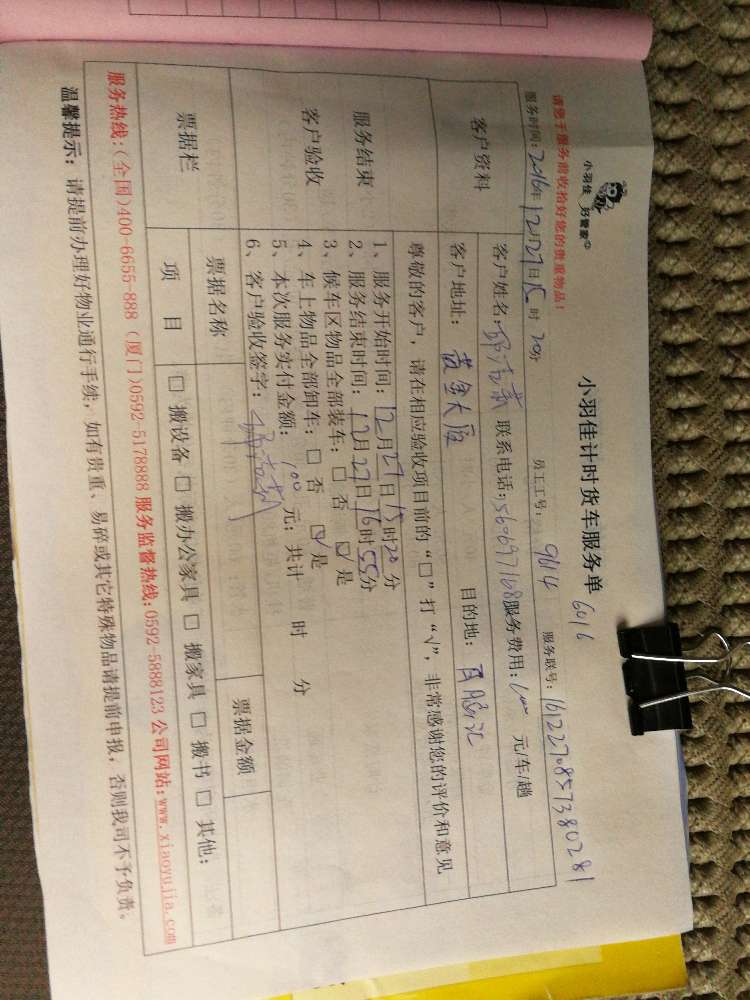 小羽佳 好管家
小羽佳计时货车服务单 6016
请您于服务前收拾好您的贵重物品！
服务时间：2016年12月27日15时20分 员工工号：9614 服务联号：161227085738028 1
客户资料
客户姓名： 联系电话： 服务费用：100 元/车/趟
客户地址：黄金大厦 目的地：百脑汇
服务结束
客户验收
尊敬的客户，请在相应验收项目前的“□”打“√”，非常感谢您的评价和意见
1、服务开始时间：12月27日15时20分
2、服务结束时间：12月27日16时55分
3、候车区物品全部装车：□ 否 ☑ 是
4、车上物品全部卸车：□ 否 ☑ 是
5、本次服务实付金额：100元；共计 时 分
6、客户验收签字：
票据栏
票据名称 票据金额
项 目 □ 搬设备 □ 搬办公家具 □ 搬家具 □ 搬书 □ 其他：
服务热线：（全国）400-6655-888（厦门）0592-5178888 服务监督热线：0592-5888123 公司网站：www.xiaoyujia.com
温馨提示：请提前办理好物业通行手续，如有贵重、易碎或其它特殊物品请提前申报，否则我司不予负责。